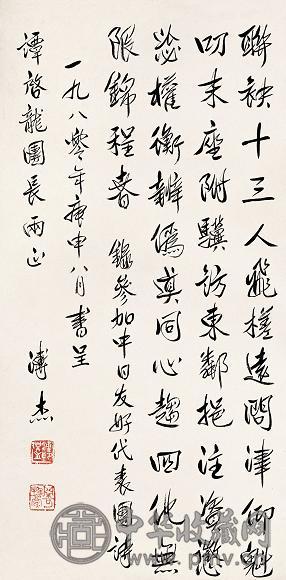 聯袂十三人飛槎遠問津仰
叨末座附驥訪東鄰挹注資懲
毖權衡辨僞真同心趨四化無
限錦程春 參加中日友好代表團詩
一九八零年庚申八月書呈
譚啓龍團長兩正
溥杰
中华收藏网